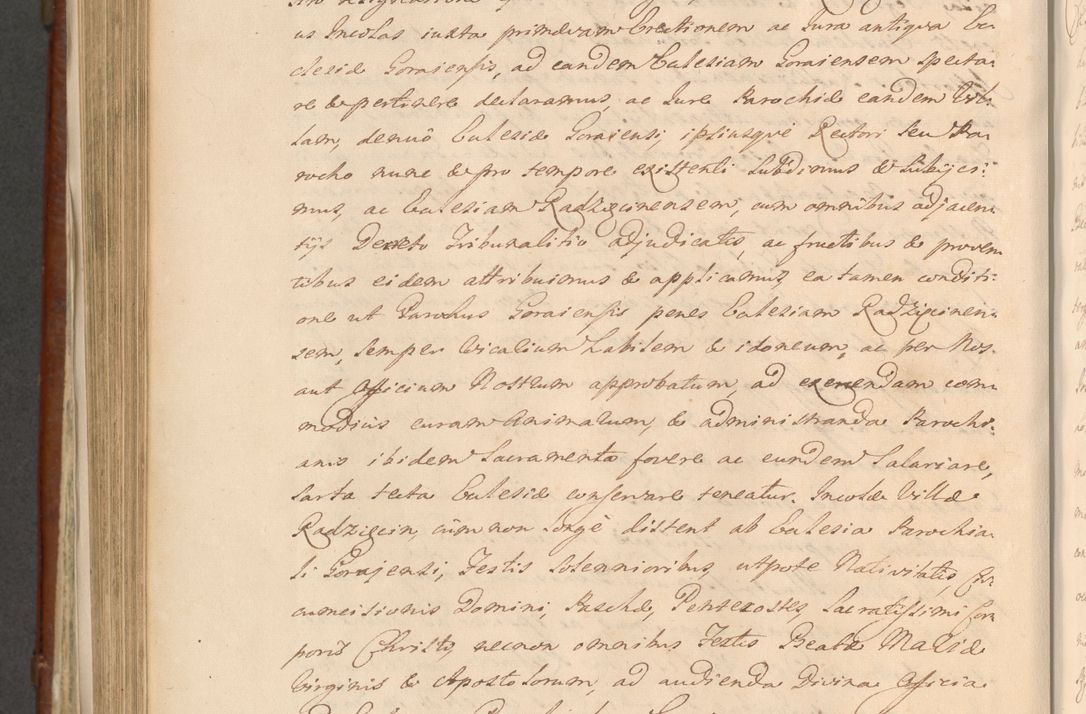 us Incolas iuxta primævam Erectionem ac Jura antiqva Ec-
clesiæ Goraiensis, ad eandem Ecclesiam Goraiensem specta-
re & pertinere declaramus, ac Jure Parochiæ eandem Vil-
lam, denuò Ecclesiæ Goraiensi, ipsiusqve Rectori seu Pa-
rocho nunc & pro tempore existenti subdimus & subijci-
mus, ac Ecclesiam Radzięcinensem, cum omnibus adjacen-
tijs Decreto Tribunalitio adjudicatis, ac fructibus & proven-
tibus eidem attribuimus & applicamus, ea tamen conditi-
one ut Parochus Goraiensis penes Ecclesiam Radzięcinen-
sem, semper Vicarium habilem & idoneum, ac per Nos
aut Officium Nostrum approbatum, ad exercendam com-
modius curam Animarum, & administranda Parochi-
anis ibidem Sacramenta fovere ac eundem Salariare,
sarta tecta Ecclesiæ conservare teneatur. Incolæ Villæ
Radzięcin, cùm non longè distent ab Ecclesia Parochia-
li Gorajensi, Festis solennioribus, utpote Nativitatis, Cir-
cumcisionis Domini, Paschæ, Pentecostes, Sacratissimi Cor-
poris Christi, necnon omnibus Festis Beatæ Mariæ
Virginis & Apostolorum, ad audienda Divina Officia